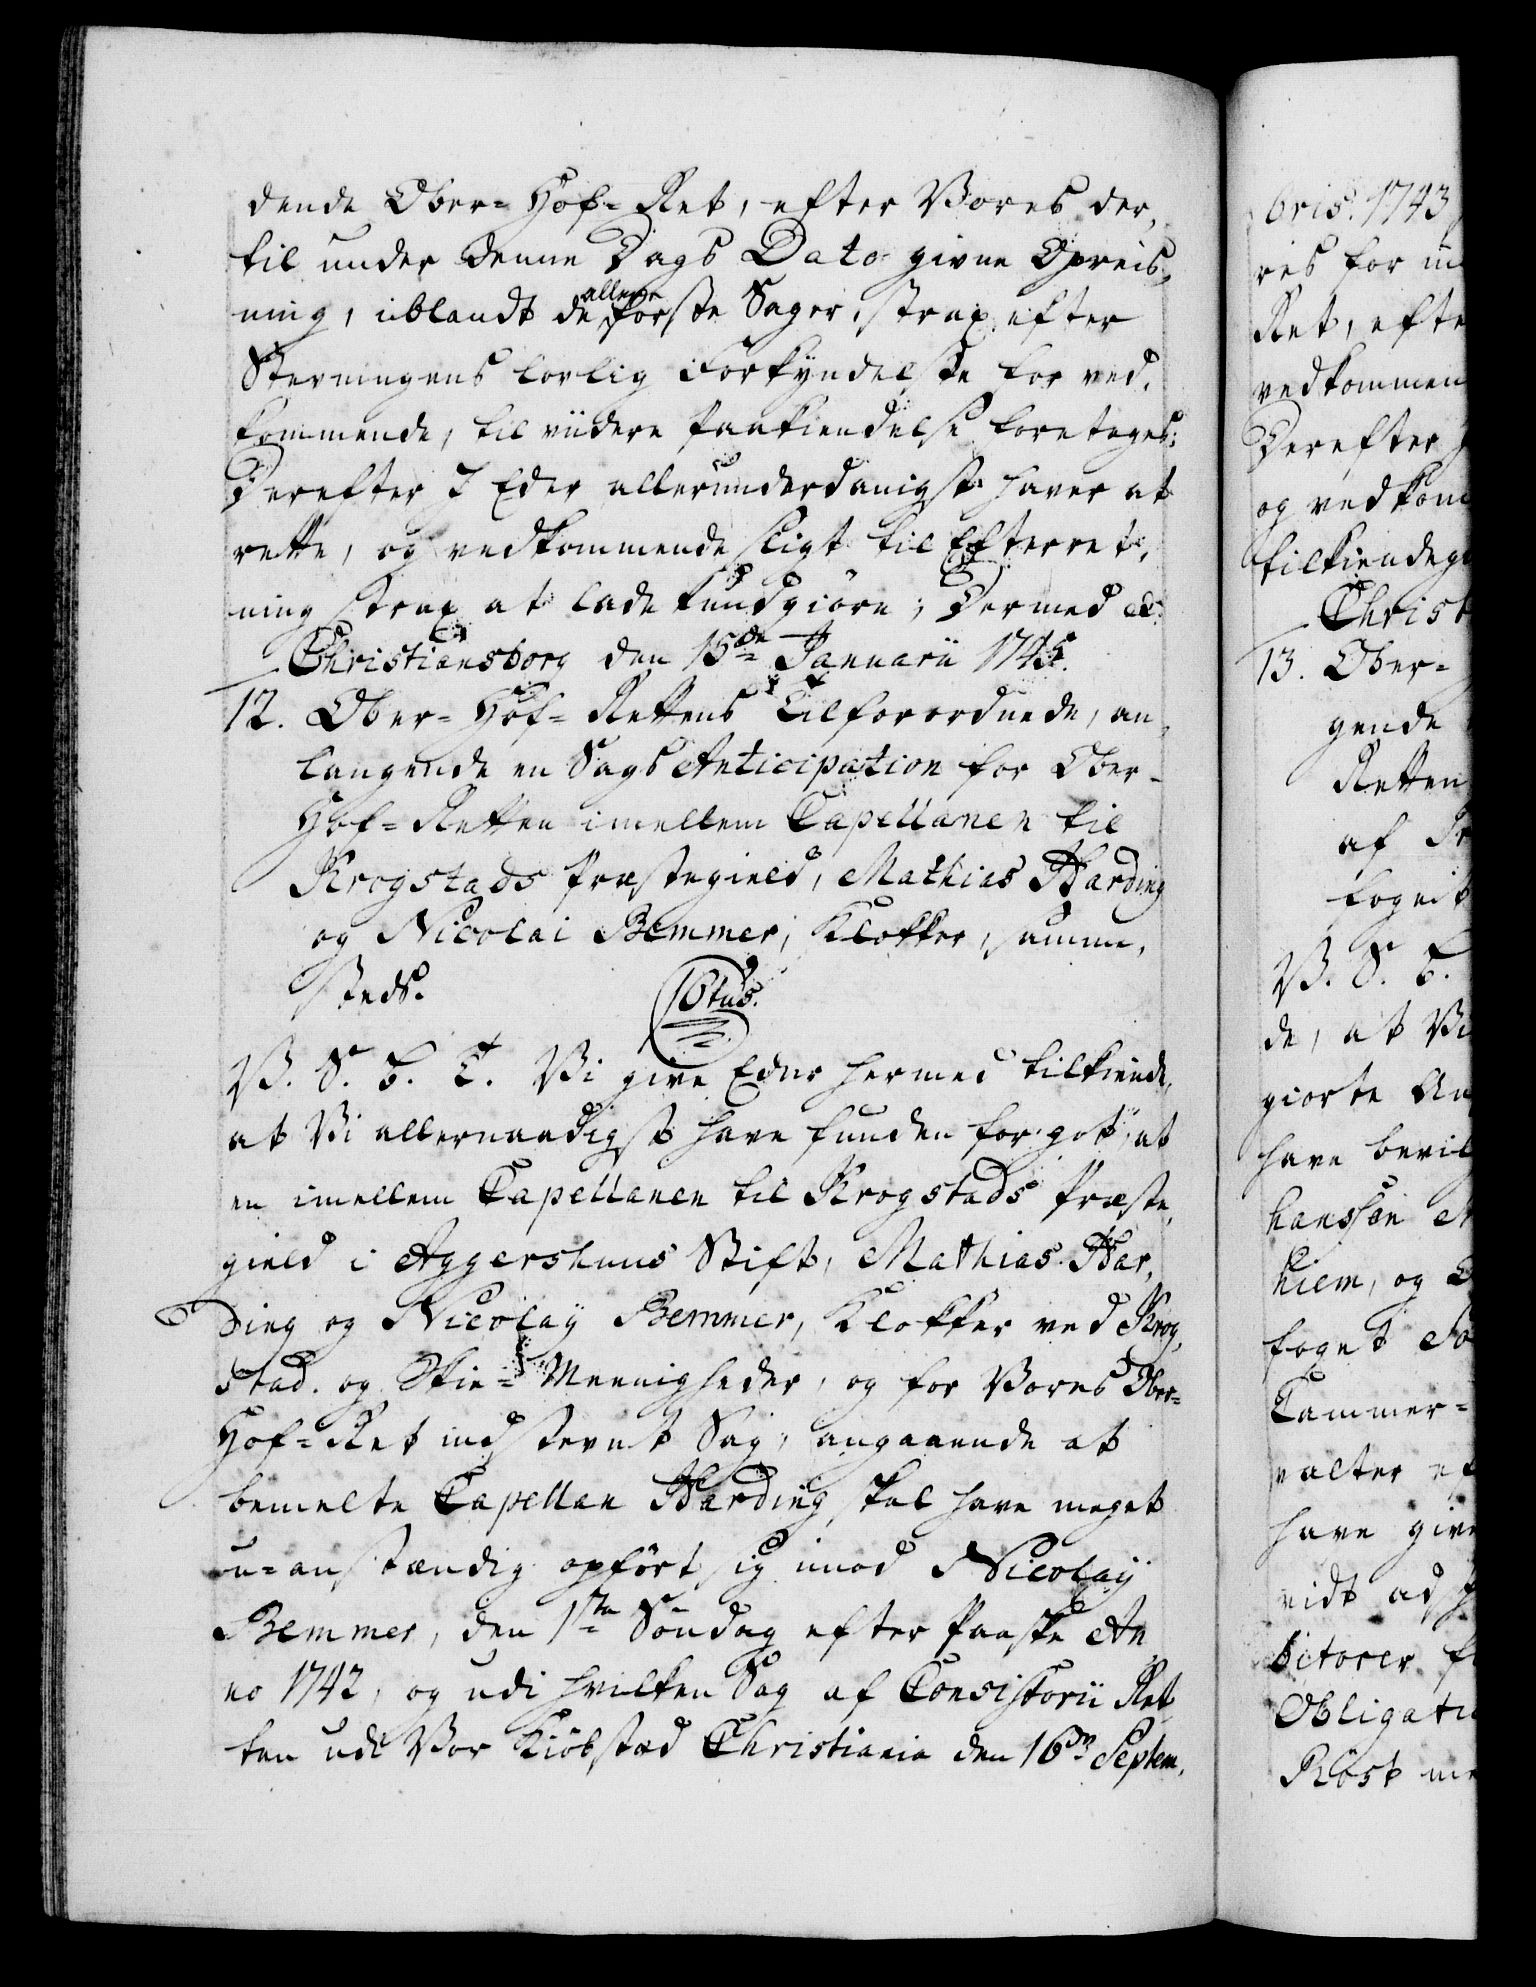 dende Ober- Hof- Ret, efter Vores der,
til under denne Dags Dato givne Opreis,
ning, iblandt de allene første Sager, strax efter
Stevningens lovlig Forkyndelse for ved,
kommende, til viidere Paakiendelse foretages;
Derefter I Eder allerunderdanigst haver at
rette, og vedkommende sligt til Efterret,
ning strax at lade kundgiøre; Dermed &c:
Christiansborg den 15de Januarii 1745.
12. Ober- Hof- Rettens Tilforordnede, an,
langende en Sags Anticipation for Ober-
Hof- Retten imellem Capellanen til
Krogstads Præstegield, Mathias Harding
og Nicolai Bemmer, Klokker, samme,
steds.
16tus.
V. S. G. T. Vi give Eder hermed tilkiende,
at Vi allernaadigst have funden for got, at
en imellem Capellanen til Krogstads Præste,
gield i Aggershuus Stift, Mathias Har,
ding og Nicolaij Bemmer, Klokker ved Krog,
stad og Skie- Meenigheder, og for Vores Ober-
Hof- Ret indstevnt Sag, angaaende at
bemelte Capellan Harding skal have meget
u-anstændig opført sig imod Nicolaij
Bemmer, den 1ste Søndag efter Paaske An
no 1742, og udi hvilken Sag af Consistorii Ret,
ten udi Vor Kiøbstæd Christiania den 16de Septem,
bris. 1743
res for in
Ret, efte
vedkommen
Derefter
og vedkom
tilkiendegi
Christ
13. Ober-
gende
Retten
af
foged
V. S. G.
de, at Vi
giorte An
have bevil
hanssøn
hiem, og
foged
Cammer-
valter ef
have give
vidt
bitorer
Obligati
Røst me